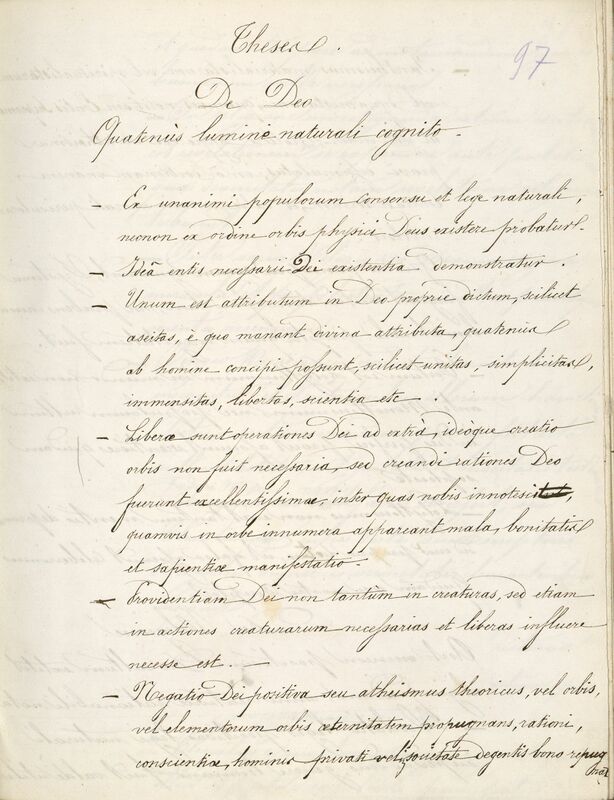 Theses.
97
De Deo
Quatenùs lumine naturali cognito.
- Ex unanimi populorum consensu et lege naturali,
necnon ex ordine orbis physici Deus existere probatur.
- Ideâ entis necessarii Dei existentia demonstratur.
- Unum est attributum in Deo proprie dictum, scilicet
aseitas, è quo manant divina attributa, quatenus
ab homine concipi possunt, scilicet unitas, simplicitas,
immensitas, libertas, scientia etc.
- Liberæ sunt operationes Dei ad extrà, ideòque creatio
orbis non fuit necessaria, sed creandi rationes Deo
fuerunt excellentissimæ, inter quas nobis innotesci,
quamvis in orbe innumera appareant mala, bonitatis
et sapientiæ manifestatio.
- Providentiam Dei non tantum in creaturas, sed etiam
in actiones creaturarum necessarias et liberas influere
necesse est. -
- Negatio Dei positiva seu atheismus theoricus, vel orbis,
vel elementorum orbis æternitatem propugnans, rationi,
conscientiæ, hominis privati vel societate degentis bono repug